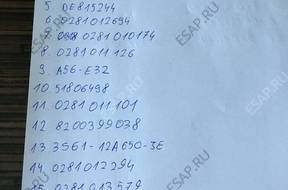 5. DE815244
6. 0281012694
7. 0281010174
8. 0281 011 126
9. A56-E32
10. 51806498
11. 0281 011 101
12. 8200399038
13. 3S61-12A650-3E
14. 0281012294
15. 0281013579
allegro